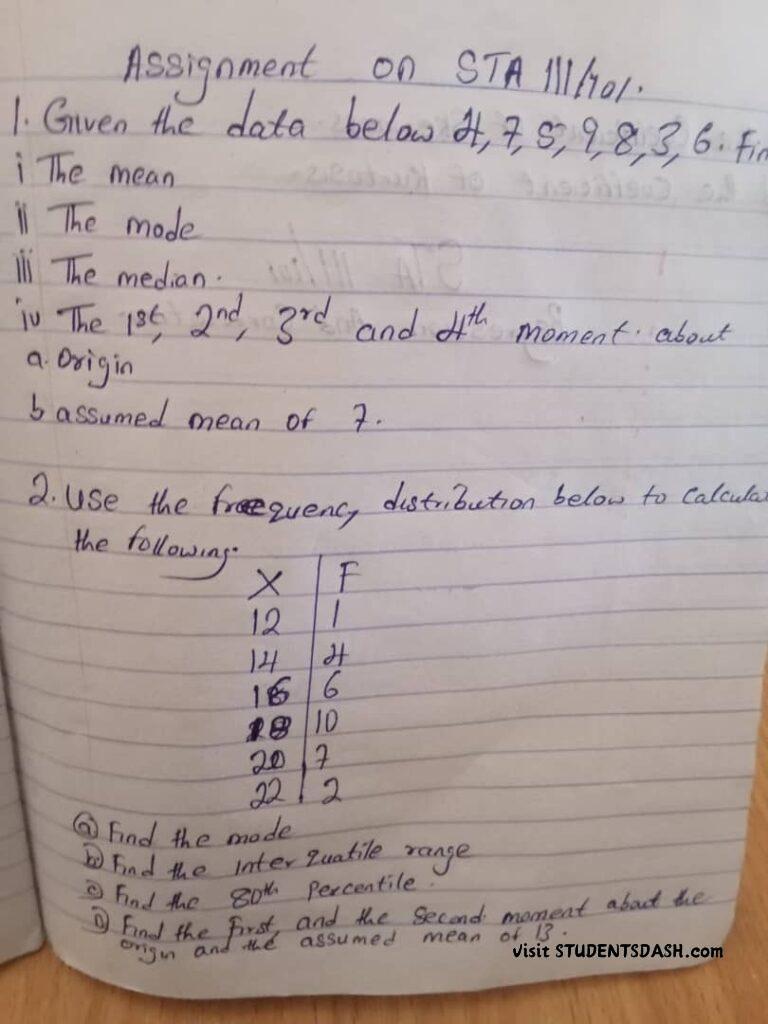 Assignment on STA 111/101.
1. Given the data below 4, 7, 5, 9, 8, 3, 6. Fin
i The mean
ii The mode
iii The median.
iv The 1st, 2nd, 3rd and 4th moment. about
a. Origin
b assumed mean of 7.
2. Use the frequency distribution below to Calcula
the following.
X F
12 1
14 4
16 6
18 10
20 7
22 2
a) Find the mode
b) Find the inter quatile range
c) Find the 80th Percentile.
D) Find the First, and the Second moment about the
origin and the assumed mean of 13.
visit STUDENTSDASH.com